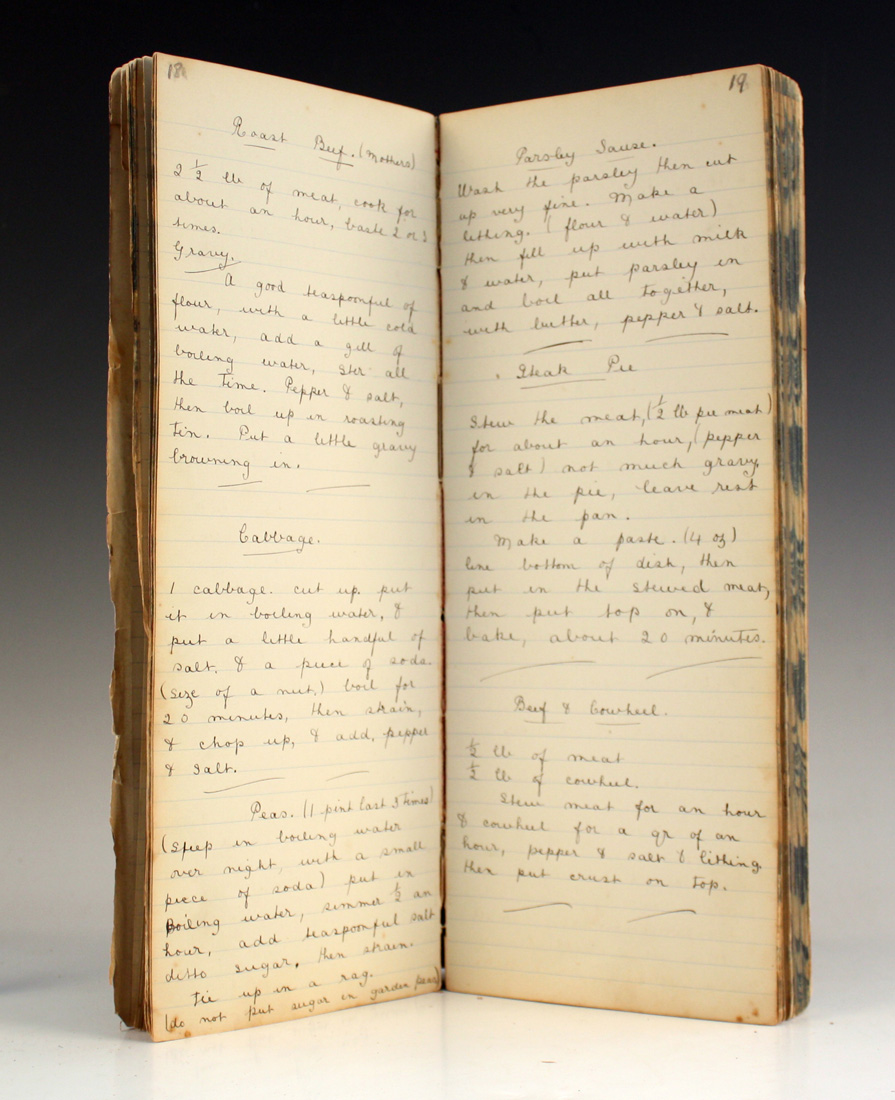 18
Roast Beef. (Mothers)
2 1/2 lb of meat, cook for
about an hour, baste 2 or 3
times.
Gravy.
A good teaspoonful of
flour, with a little cold
water, add a gill of
boiling water, stir all
the time. Pepper & salt,
then boil up in roasting
tin. Put a little gravy
browning in.
Cabbage.
1 cabbage. cut up. put
it in boiling water, &
put a little handful of
salt. & a piece of soda.
(size of a nut.) boil for
20 minutes, then strain,
& chop up, & add, pepper
& salt.
Peas. (1 pint last 3 times)
(Steep in boiling water
over night, with a small
piece of soda) put in
Boiling water, simmer 1/2 an
hour, add teaspoonful salt
ditto sugar. then strain.
Tie up in a rag.
(do not put sugar in garden peas)
19
Parsley Sause.
Wash the parsley then cut
up very fine. Make a
lithing. (flour & water)
then fill up with milk
& water, put parsley in
and boil all together,
with butter, pepper & salt.
Steak Pie
Stew the meat, (1/2 lb pie meat)
for about an hour, (pepper
& salt) not much gravy.
in the pie, leave rest
in the pan.
Make a paste. (4 oz)
line bottom of dish, then
put in the stewed meat,
then put top on, &
bake, about 20 minutes.
Beef & Cowheel.
1/2 lb of meat
1/2 lb of cowheel.
Stew meat for an hour
& cowheel for a qr of an
hour, pepper & salt & lithing.
then put crust on top.